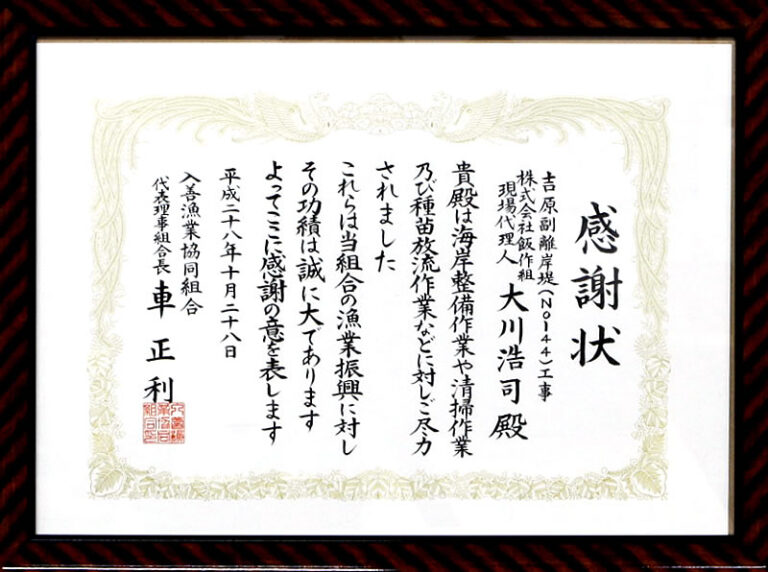 感謝状
吉原副離岸堤(NO144)工事
株式会社飯作組
現場代理人
大川浩司 殿
貴殿は海岸整備作業や清掃作業
乃び種苗放流作業などに対しご尽力
されました
これらは当組合の漁業振興に対し
その功績は誠に大であります
よってここに感謝の意を表します
平成二十八年十月二十八日
入善漁業協同組合
代表理事組合長 車正利